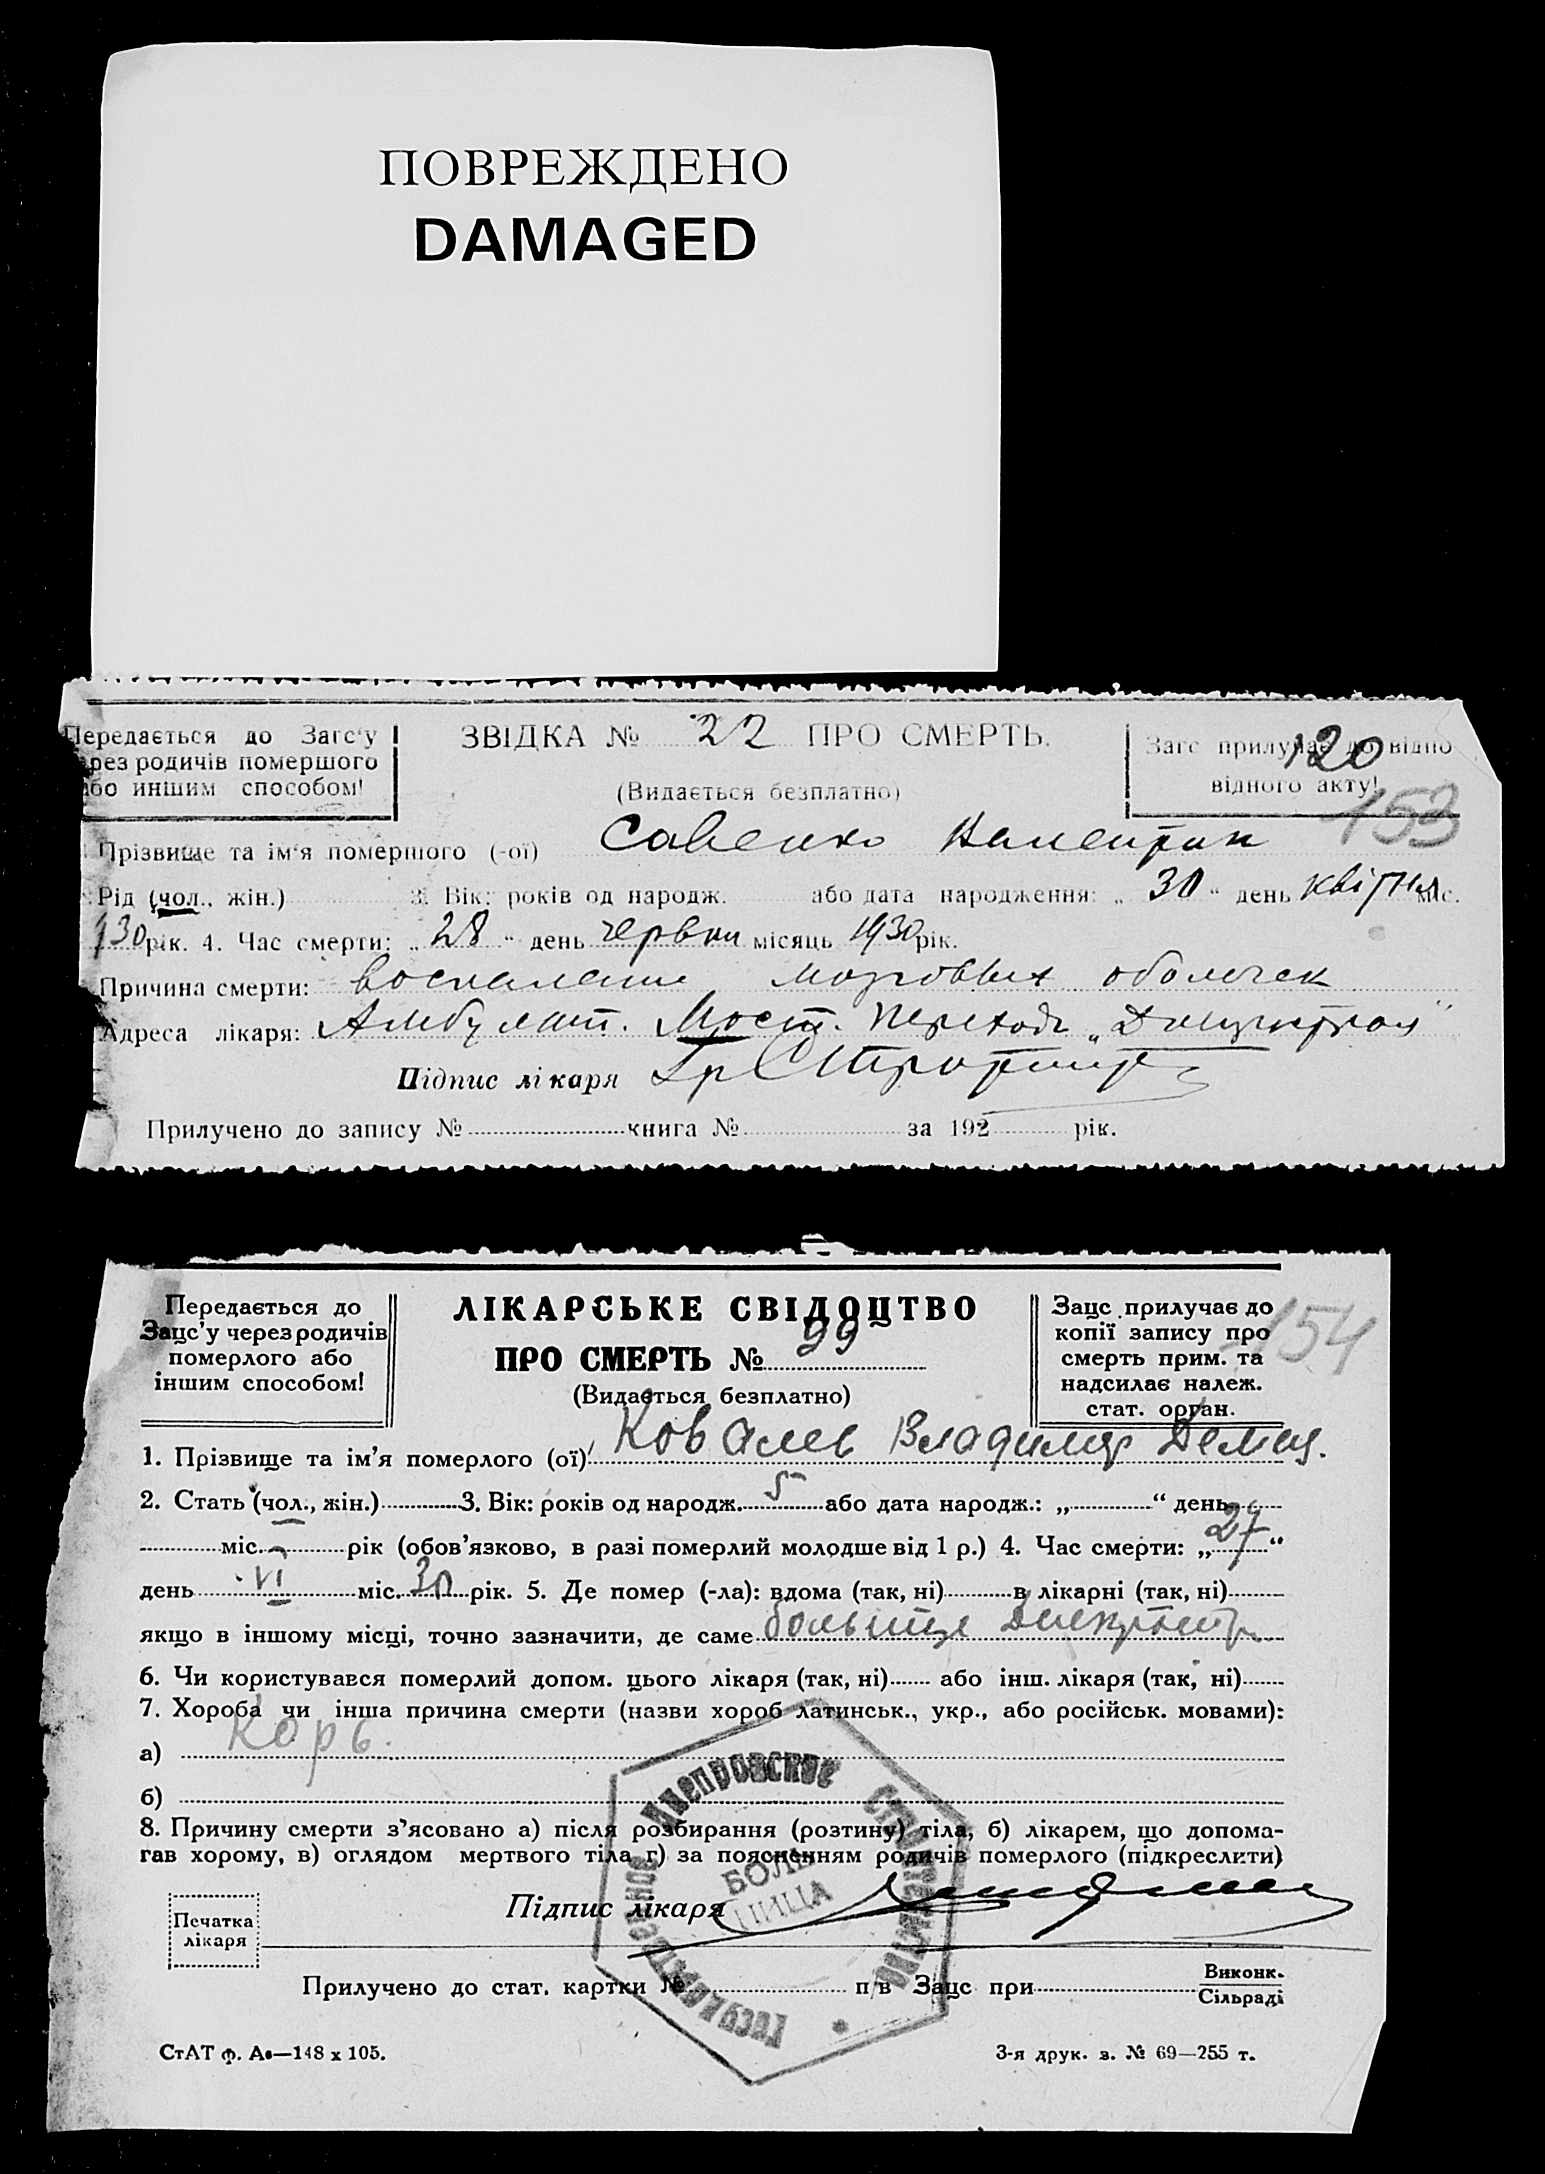 ПОВРЕЖДЕНО
DAMAGED
Передається до Загс'у
через родичів помершого
або иншим способом!
ЗВІДКА № 22 ПРО СМЕРТЬ.
(Видається безплатно)
120
Загс прилучає до відпо
відного акту!
153
Прізвище та ім'я помершого (-ої) Савенко Валентин
Рід (чол., жін.) 3. Вік: років од народж. або дата народження: „30“ день квітня міс.
930 рік. 4. Час смерти: „28“ день червня місяць 1930 рік.
Причина смерти: воспаление мозговых оболочек
Адреса лікаря: Амбулат. Мост. перехода „Днепрострой"
Підпис лікаря
Прилучено до запису № книга № за 192 рік.
Передається до
Зацс'у через родичів
померлого або
іншим способом!
ЛІКАРСЬКЕ СВІДОЦТВО
ПРО СМЕРТЬ № 99
(Видається безплатно)
Зацс прилучає до
копії запису про
смерть прим. та
надсилає належ.
стат. орган.
154
1. Прізвище та ім'я померлого (ої) Ковалев Владимир
2. Стать (чол., жін.) 3. Вік: років од народж. 5 або дата народж.: „ “ день
міс. рік (обов'язково, в разі померлий молодше від 1 р.) 4. Час смерти: „27“
день VI міс. 30 рік. 5. Де помер (-ла): вдома (так, ні) в лікарні (так, ні)
якщо в іншому місці, точно зазначити, де саме больнице
6. Чи користувався померлий допом. цього лікаря (так, ні) або інш. лікаря (так, ні)
7. Хороба чи інша причина смерти (назви хороб латинськ., укр., або російськ. мовами):
а) Корь.
б)
8. Причину смерти з'ясовано а) після розбирання (розтину) тіла, б) лікарем, що допома-
гав хорому, в) оглядом мертвого тіла г) за поясненням родичів померлого (підкреслити)
Днепровское
БОЛЬ
НИЦА
Підпис лікаря
Печатка
лікаря
Прилучено до стат. картки № п/в Зацс при Виконк.
Сільраді
СтАТ ф. А6—148 х 105.
3-я друк. з. № 69—255 т.